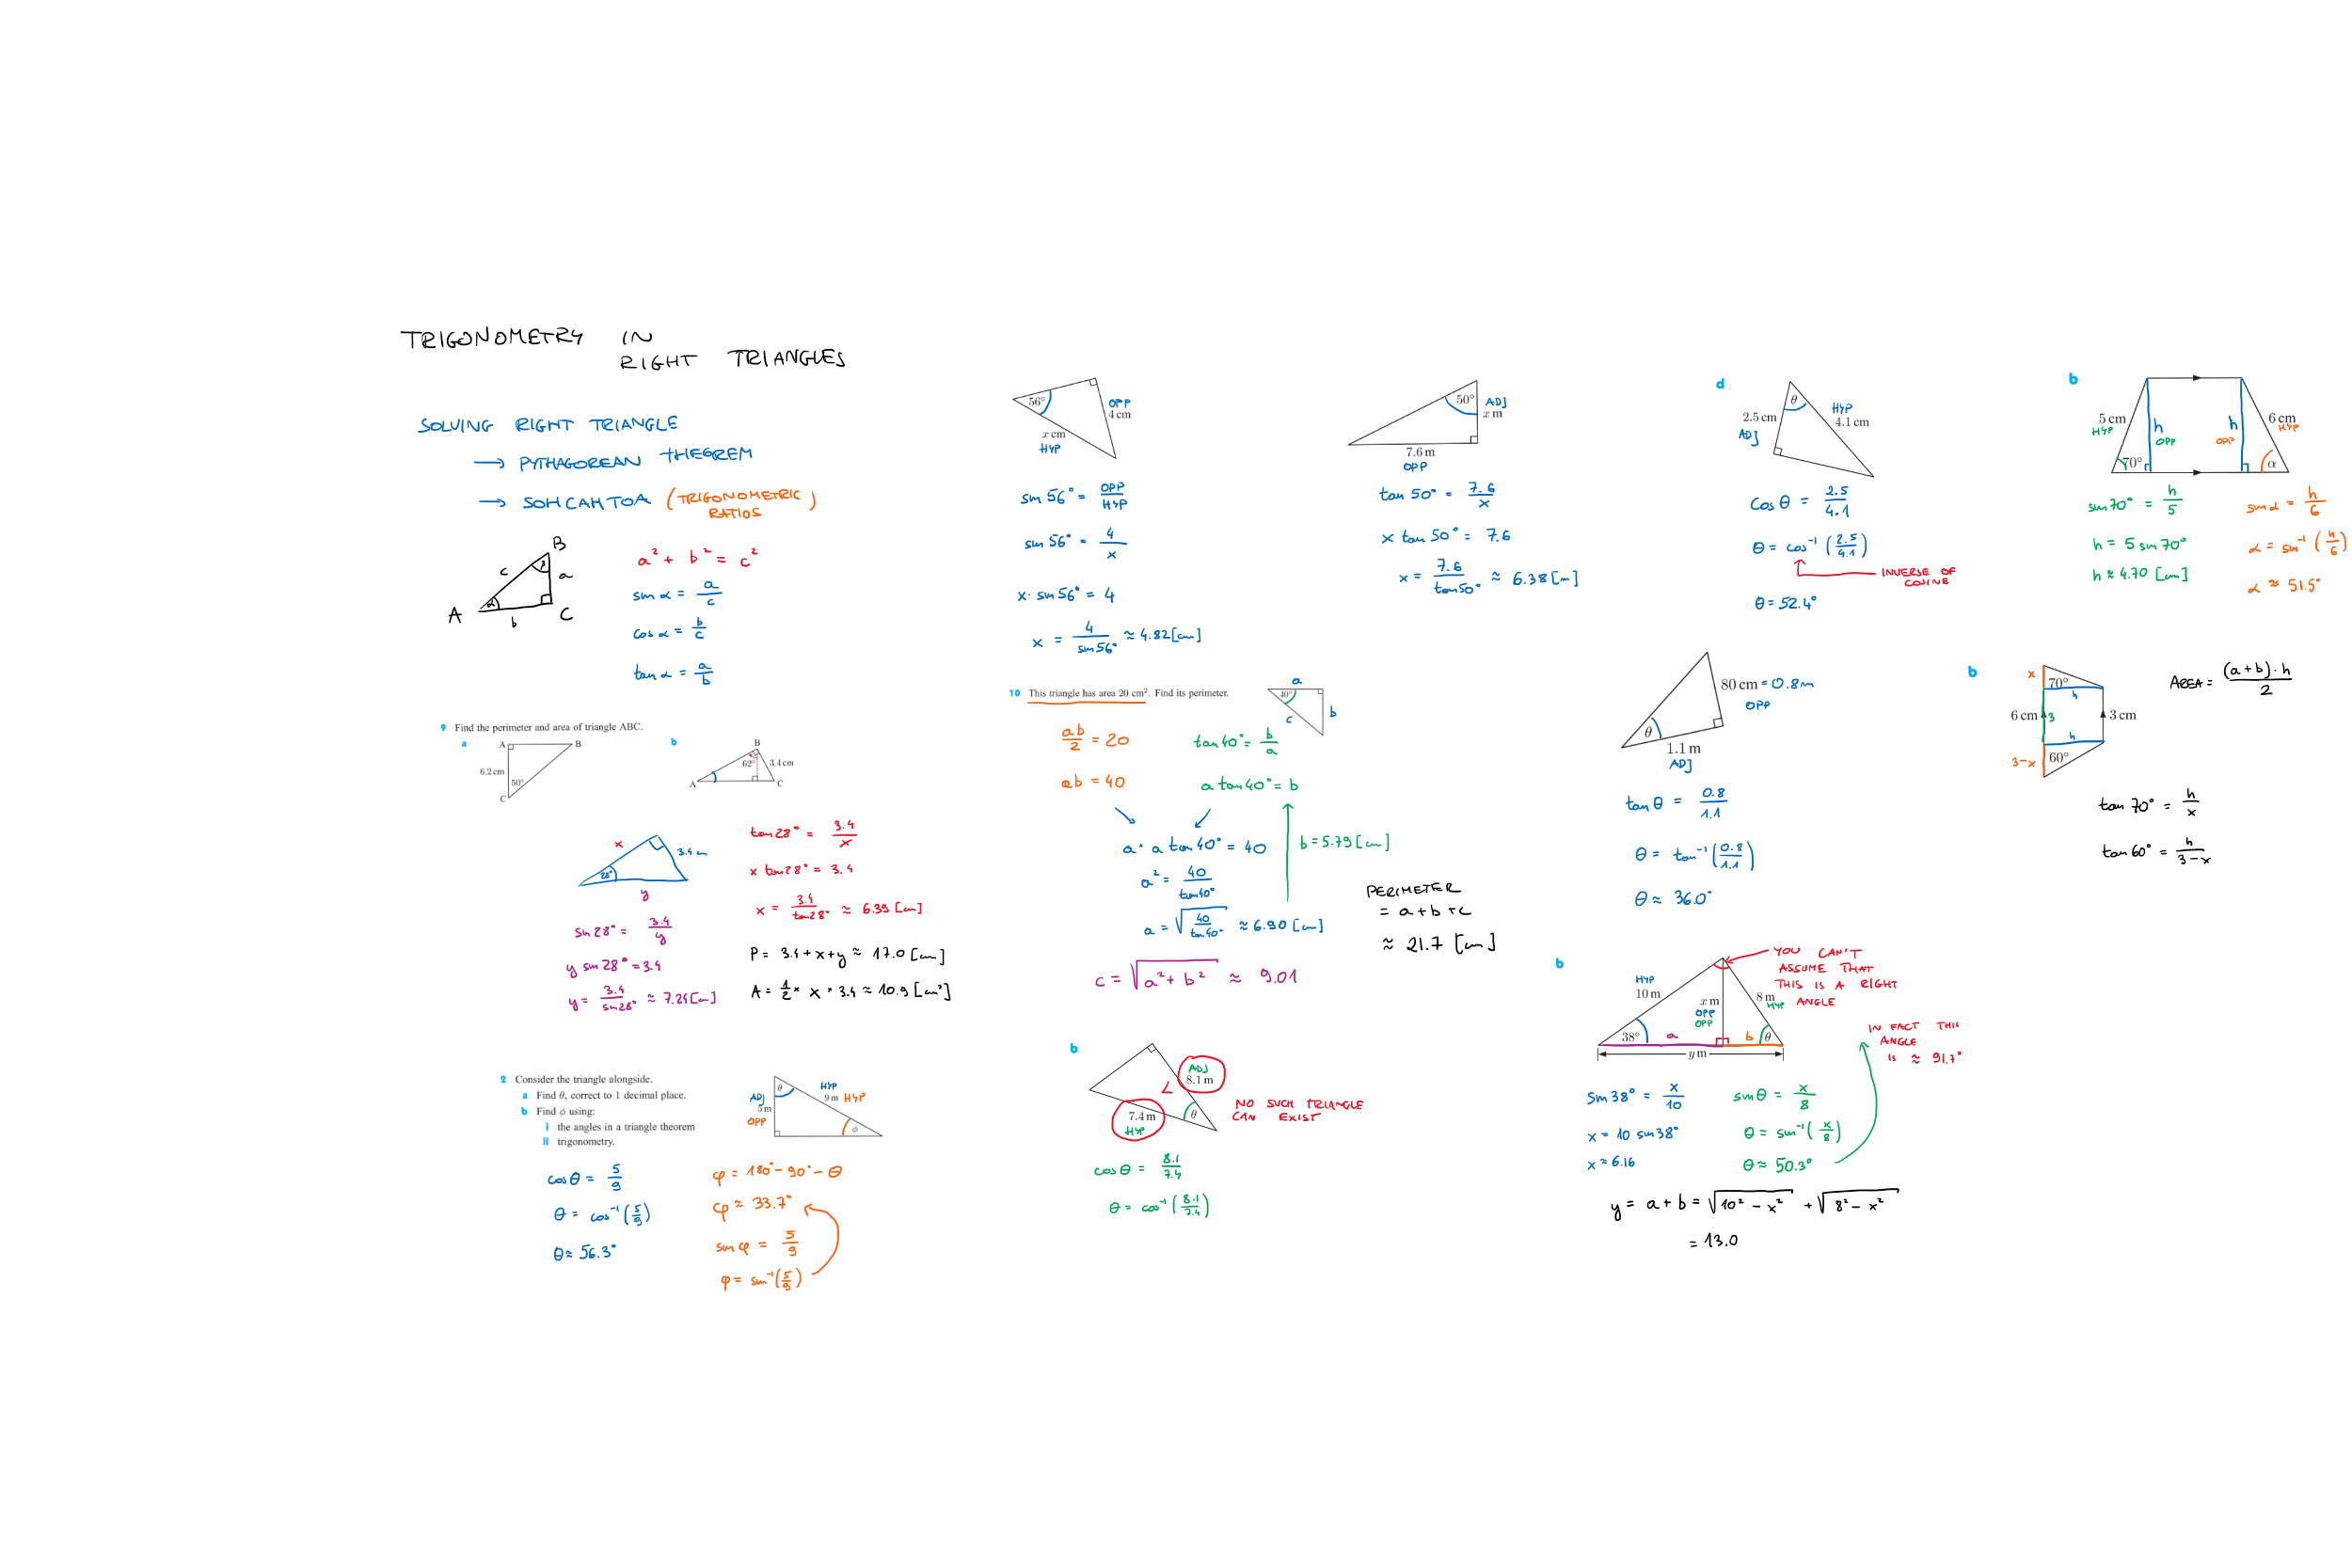 TRIGONOMETRY IN
RIGHT TRIANGLES
SOLVING RIGHT TRIANGLE
→ PYTHAGOREAN THEOREM
→ SOH CAH TOA (TRIGONOMETRIC
RATIOS)
B
c a
A α b C
a² + b² = c²
sin α = a/c
cos α = b/c
tan α = a/b
9 Find the perimeter and area of triangle ABC.
a
A B
6.2 cm
50°
C
b
B
62° 3.4 cm
A C
x 3.4 cm
28°
y
sin 28° = 3.4/y
y sin 28° = 3.4
y = 3.4/sin 28° ≈ 7.24 [cm]
tan 28° = 3.4/x
x tan 28° = 3.4
x = 3.4/tan 28° ≈ 6.39 [cm]
P = 3.4 + x + y ≈ 17.0 [cm]
A = 1/2 * x * 3.4 ≈ 10.9 [cm²]
2 Consider the triangle alongside.
a Find θ, correct to 1 decimal place.
b Find ϕ using:
i the angles in a triangle theorem
ii trigonometry.
θ HYP
ADJ 9 m HYP
5 m
OPP ϕ
cos θ = 5/9
θ = cos⁻¹(5/9)
θ ≈ 56.3°
φ = 180° - 90° - θ
φ ≈ 33.7°
sin φ = 5/9
φ = sin⁻¹(5/9)
56° OPP
4 cm
x cm
HYP
sin 56° = OPP/HYP
sin 56° = 4/x
x · sin 56° = 4
x = 4/sin 56° ≈ 4.82 [cm]
50° ADJ
x m
7.6 m
OPP
tan 50° = 7.6/x
x tan 50° = 7.6
x = 7.6/tan 50° ≈ 6.38 [m]
10 This triangle has area 20 cm². Find its perimeter.
a
40°
c b
ab/2 = 20
ab = 40
tan 40° = b/a
a tan 40° = b
a · a tan 40° = 40
b = 5.79 [cm]
a² = 40/tan 40°
a = √(40/tan 40°) ≈ 6.90 [cm]
c = √(a² + b²) ≈ 9.01
PERIMETER
= a + b + c
≈ 21.7 [cm]
b
ADJ
8.1 m
∠
7.4 m θ
HYP
NO SUCH TRIANGLE
CAN EXIST
cos θ = 8.1/7.4
θ = cos⁻¹(8.1/7.4)
d
θ HYP
2.5 cm 4.1 cm
ADJ
cos θ = 2.5/4.1
θ = cos⁻¹(2.5/4.1)
INVERSE OF
COSINE
θ = 52.4°
80 cm = 0.8 m
OPP
θ
1.1 m
ADJ
tan θ = 0.8/1.1
θ = tan⁻¹(0.8/1.1)
θ ≈ 36.0°
b
YOU CAN'T
ASSUME THAT
THIS IS A RIGHT
ANGLE
HYP
10 m x m 8 m
OPP HYP
OPP
38° a b θ
y m
IN FACT THIS
ANGLE
IS ≈ 91.7°
sin 38° = x/10
x = 10 sin 38°
x ≈ 6.16
sin θ = x/8
θ = sin⁻¹(x/8)
θ ≈ 50.3°
y = a + b = √(10² - x²) + √(8² - x²)
= 13.0
b
5 cm h h 6 cm
HYP OPP OPP HYP
70° α
sin 70° = h/5
h = 5 sin 70°
h ≈ 4.70 [cm]
sin α = h/6
α = sin⁻¹(h/6)
α ≈ 51.5°
b
x 70°
h
6 cm 3 3 cm
h
3-x 60°
AREA = (a+b)·h/2
tan 70° = h/x
tan 60° = h/3-x